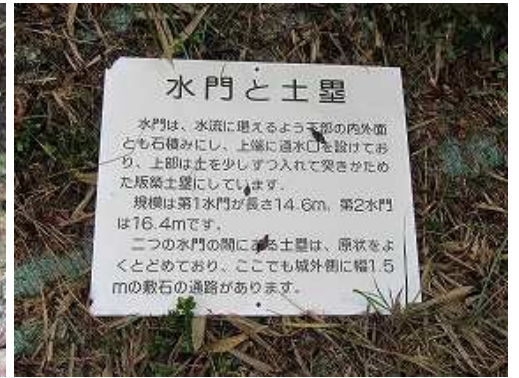 水門と土塁
水門は、水流に堪えるよう下部の内外面
とも石積みにし、上端に通水口を設けてお
り、上部は土を少しずつ入れて突きかため
た版築土塁にしています。
規模は第1水門が長さ14.6m、第2水門
は16.4mです。
二つの水門の間にある土塁は、原状をよ
くとどめており、ここでも城外側に幅1.5
mの敷石の通路があります。